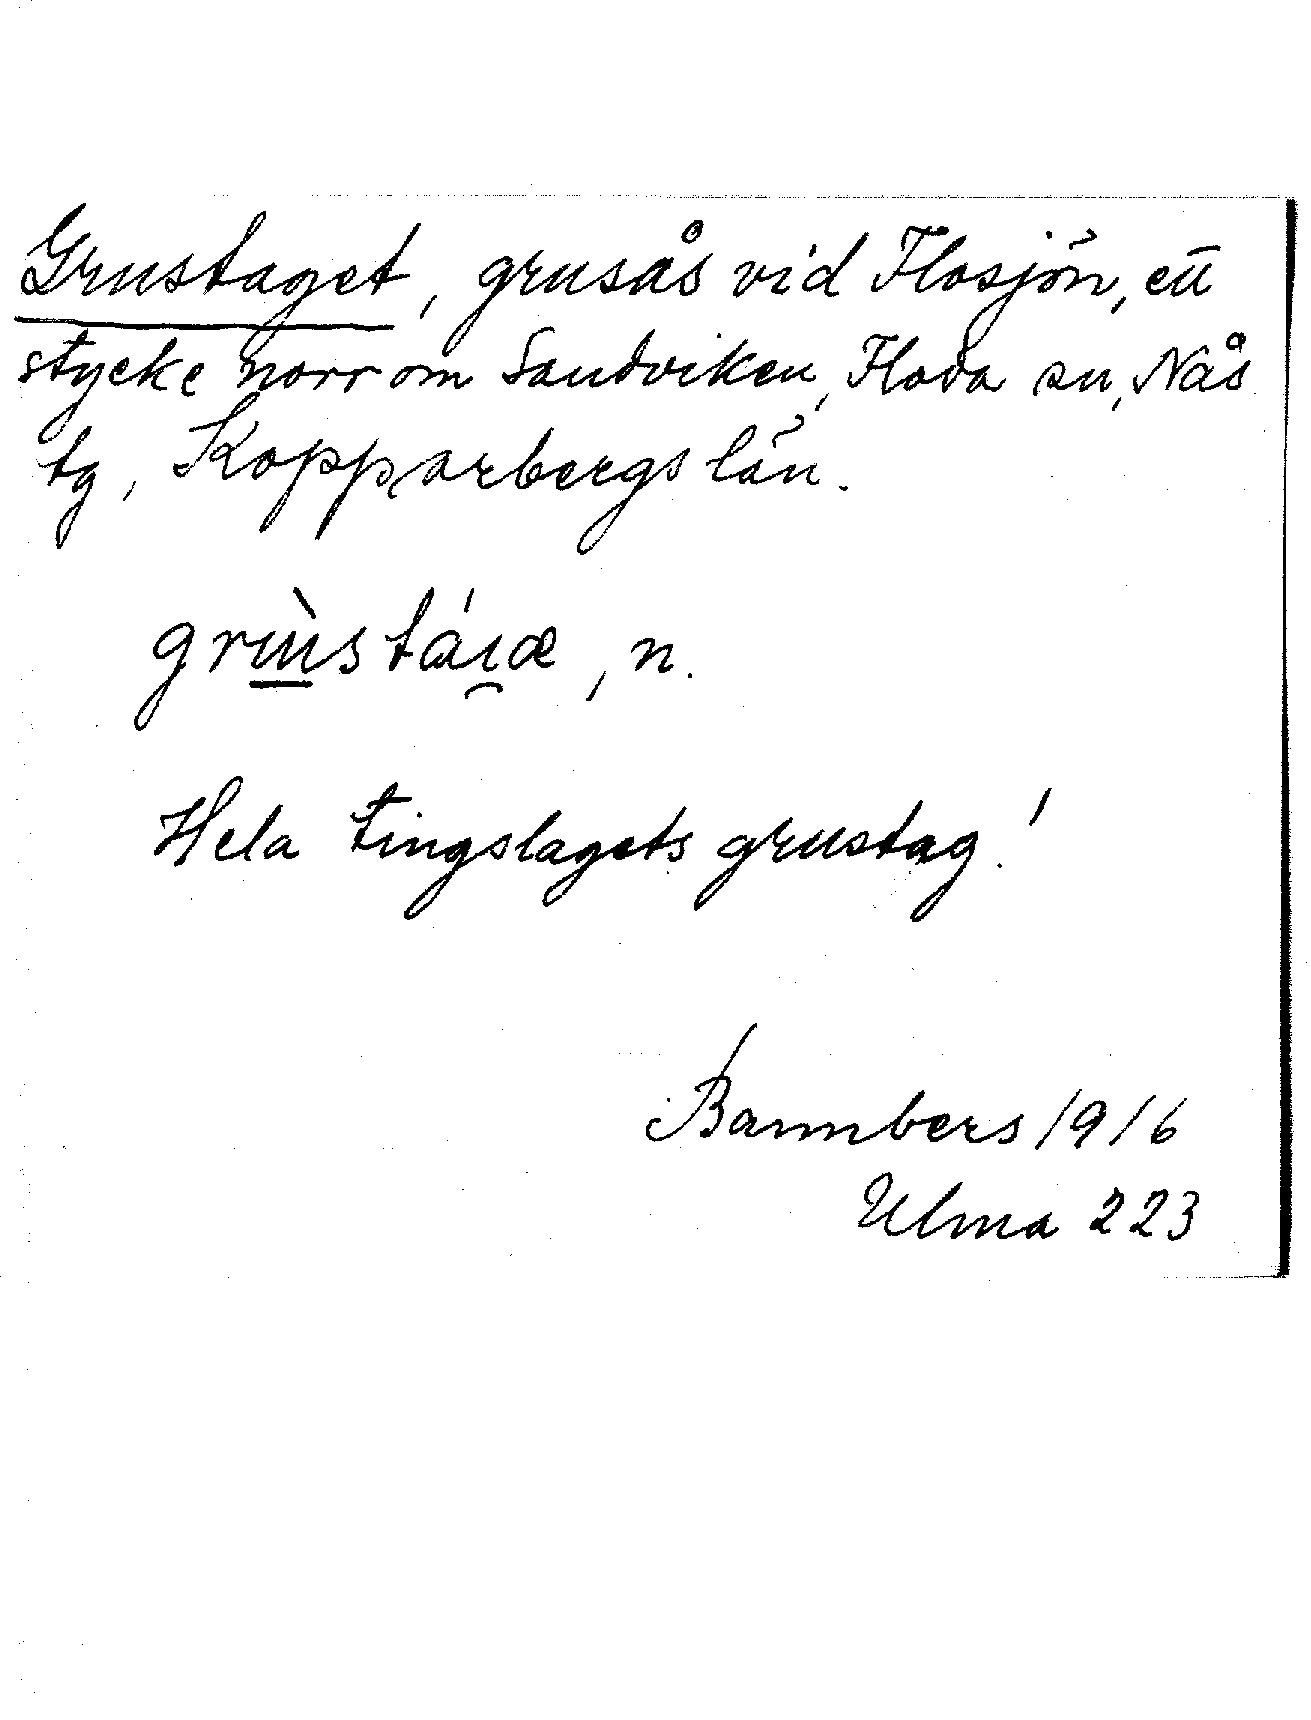 Grustaget, grusås vid Flosjön, ett
stycke norr om Sandviken, Floda sn, Nås
tg, Kopparbergs län.
grɯ̀stáɪ̯æ, n.
Hela tingslagets grustag!
Bannbers 1916
Ulma 223